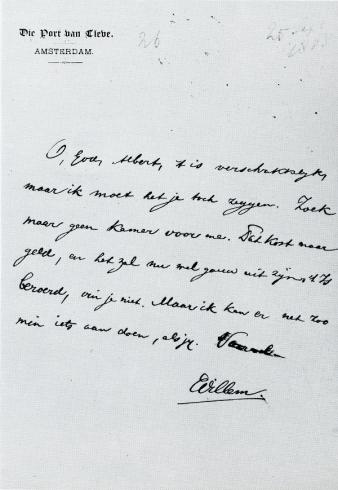 Die Port van Cleve.
AMSTERDAM.
26
O, God, Albert, 't is verschrikkelijk,
maar ik moet het je toch zeggen. Zoek
maar geen kamer voor me. Dat kost maar
geld, en het zal nu wel gauw uit zijn. 't Is
beroerd, vin je niet. Maar ik kan er net zoo
min iets aan doen, als jij.
Willem.